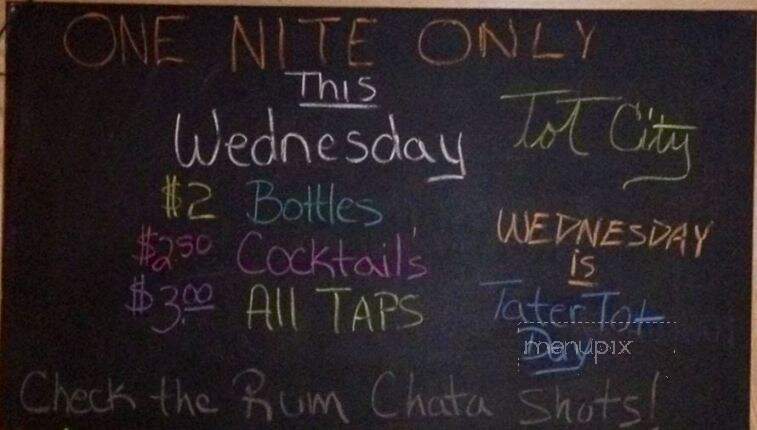 ONE NITE ONLY
This
Wednesday
$2 Bottles
$2.50 Cocktails
$3.00 All TAPS
Tot City
WEDNESDAY
is
Tater Tot
Day
menupix
Check the Rum Chata Shots!